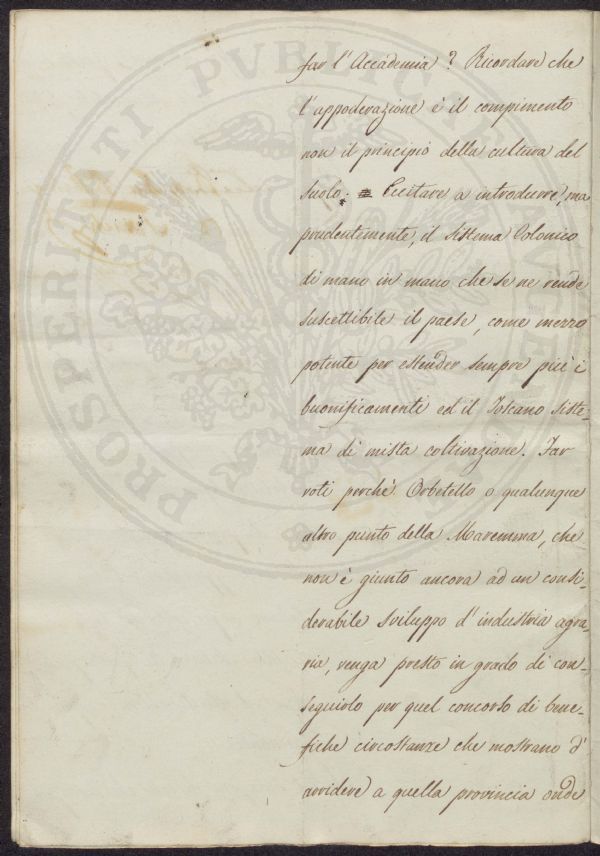 far l'Accademia? Ricordare che
l'appoderazione è il compimento
non il principio della cultura del
suolo. Eccitare a introdurre, ma
prudentemente, il sistema Colonico
di mano in mano che se ne rende
suscettibile il paese, come mezzo
potente per estender sempre più i
buonificamenti ed il Toscano siste-
ma di mista coltivazione. Far
voti perchè Orbetello o qualunque
altro punto della Maremma, che
non è giunto ancora ad un consi-
derabile sviluppo d'industria agra-
ria, venga presto in grado di con-
seguirlo per quel concorso di bene-
fiche circostanze che mostrano d'
arridere a quella provincia onde
PROSPERITATI PUBLICAE AUGENDAE